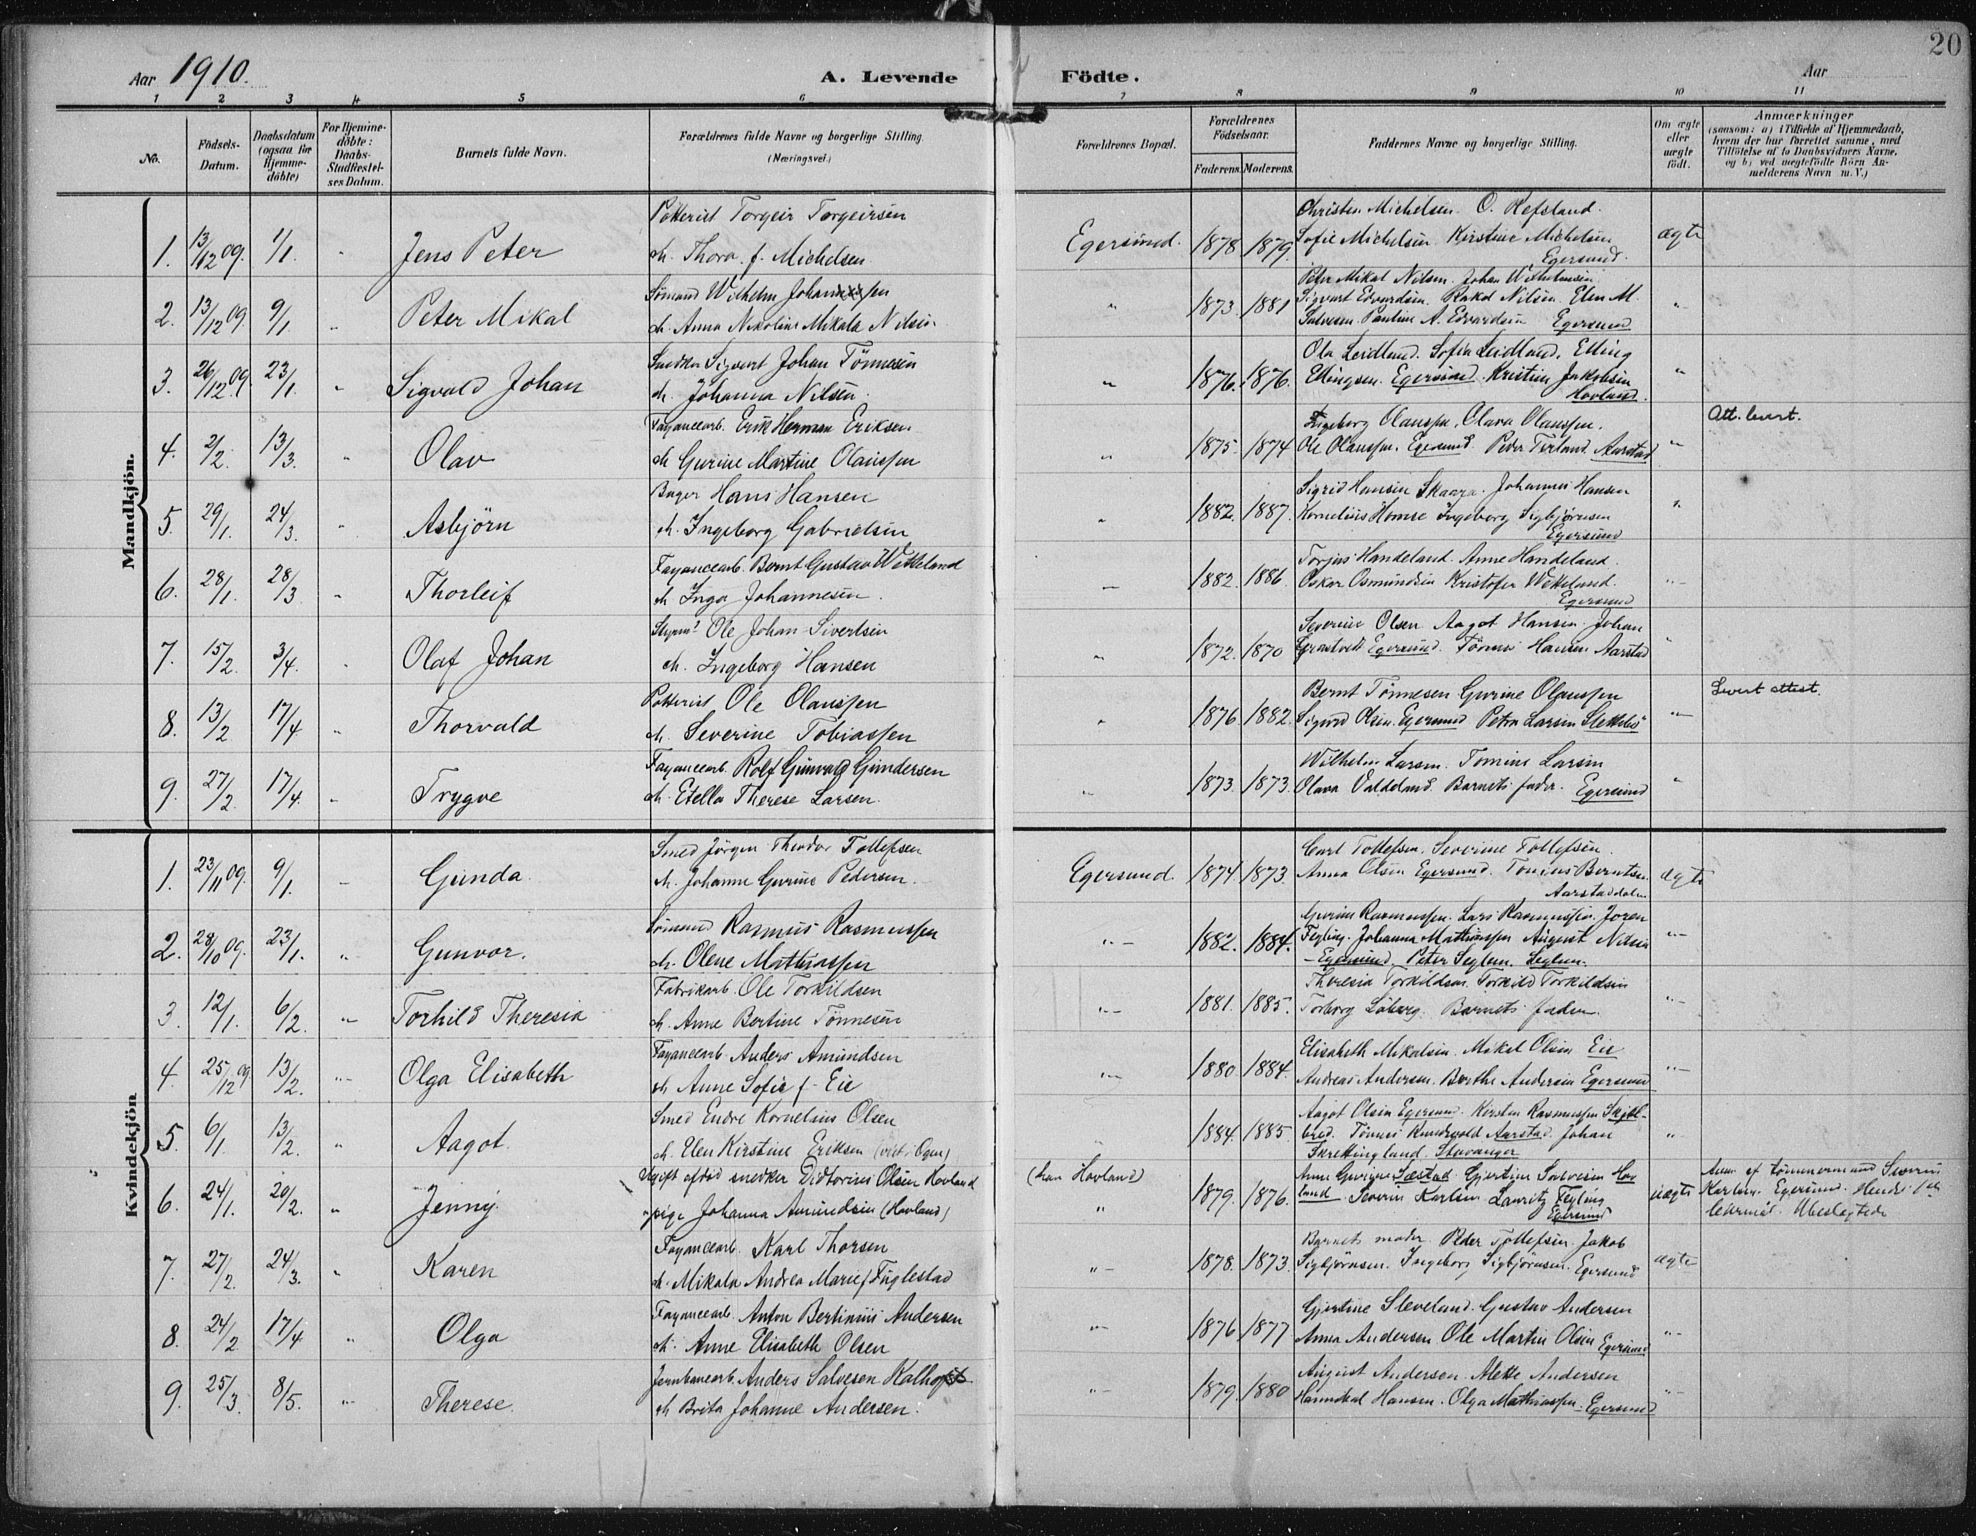 20
Aar 1910. A. Levende Födte. Aar
1 2 3 4 5 6 7 8 9 10 11
No. Födsels-Datum. Daabsdatum (ogsaa for Hjemme-döbte) For Hjemme-döbte: Daabs-Stadfæstel-ses Datum. Barnets fulde Navn. Forældrenes fulde Navne og borgerlige Stilling. (Næringsvei.) Forældrenes Bopæl. Forældrenes Födselsaar. Faderens. Moderens. Faddernes Navne og borgerlige Stilling. Om ægte eller uægte födt. Anmærkninger (saasom: a) i Tilfælde af Hjemmedaab, hvem der har forrettet samme, med Tilföielse af to Daabsvidners Navne, og b) ved uægtefödte Börn An-melderens Navn m. V.)
Mandkjön.
Potterist Torgeir Torgeirsen Christen Michelsen. O. Refsland.
1. 13/12 09. 1/1 " Jens Peter Egersund. 1878 1879 Sofie Michelsen Kirstine Michelsen ægte
m. Thora f. Michelsen. Egersund.
Sømand Wilhelm Johannssen Peter Mikal Nilsen. Johan Wilhelmsen
2. 13/12 09 9/1 " Peter Mikal " 1873 1881 Sigvart Edvardsen Rakel Nilsen Elen M. "
m. Anna Nikoline Mikala Nilsen Salvesen Pauline A. Edvardsen Egersund
Snedker Sigvart Johan Tönnesen Ola Leidland. Sofia Leidland. Elling
3. 26/12 09 23/1 " Sigvald Johan " 1876. 1876. Ellingsen. Egersund. Kristine Jakobsen "
m. Johanna Nilsen. Hovland.
Fayancearb. Erik Herman Eriksen Ingeborg Olaussen, Olava Olaussen. Att. levert.
4. 2/2 13/3. " Olav " 1875. 1874 Ole Olaussen. Egersund. Peder Terland Aarstad "
m Gurine Martine Olaussen
Bager Hans Hansen Sigrid Hansen Skaara. Johannes Hansen
5. 29/1. 24/3. " Asbjörn " 1882. 1887. Kornelius Homse Ingeborg Sigbjørnsen "
m. Ingeborg Gabrielsen Egersund
Fayancearb. Bernt Gustav Wetteland Torjus Handeland. Anne Handeland.
6. 28/1. 28/3 " Thorleif " 1882. 1886 Oskar Osmundsen Kristofer Wetteland. "
m Inga Johannesen. Egersund
Styrm. Ole Johan Sivertsen Severine Olsen Aagot Hansen. Johan
7. 15/2 3/4. " Olaf Johan " 1872. 1870 Egersund. Tönnes Hansen Aarstad "
m. Ingeborg Hansen
Potterist Ole Olaussen Bernt Tönnesen Gurine Olaussen Levert attest.
8. 13/2 17/4 " Thorvald " 1876 1882. Sigvard Olsen. Egersund Petra Larsen Slettebö "
m. Severine Tobiassen
Fayancearb. Rolf Gunvald Gundersen Wilhelm Larsen. Tomine Larsen
9. 27/2 17/4. " Trygve " 1873. 1873. Olava Valdeland. Barnets fader. Egersund "
m. Etella Therese Larsen.
Kvindekjön
Smed Jörgen Theodor Tollefsen Carl Tollefsen. Severine Tollefsen.
1. 23/11 09. 9/1. " Gunda Egersund. 1874 1873. Anna Olsen Egersund. Tönnes Berntsen ægte
m. Johanne Gurine Pedersen. Aarstaddalen
Sömand Rasmus Rasmussen Gurine Rasmussen. Lars Rasmussen. Joren
2. 28/10 09. 23/1. " Gunvor. " 1882. 1884. Tegling. Johanna Mathiassen August Nilsen "
m. Olene Mathiassen Egersund. Peter Seglem. Seglem.
Fabrikarb. Ole Torkildsen Theresia Torkildsen. Torkild Torkildsen
3. 12/1. 6/2. " Torhild Theresia " 1881. 1885. Torborg Löberg. Barnets fader. "
m. Anne Bertine Tönnesen
Fayancearb. Anders Amundsen Elisabeth Mikalsen. Mikel Olsen Eie
4. 25/12 09 13/2. " Olga Elisabeth " 1880 1884. Andreas Andersen. Berthe Andersen Egersund "
m Anne Sofie f. Eie
Smed Endre Kornelius Olsen Aagot Olsen Egersund. Kirsten Rasmussen Skjel-
5. 6/1 13/2. " Aagot. " 1884. 1885. bred. Tönnes Aarstad. Johan "
m. Elen Kirstine Eriksen Skrettingland. Stavanger
Ugift afdöd snedker Didtorius Olsen Hovland (han Hovland) Anne Gurine Sæstad Gjertine Salvesen Hov
6. 24/1. 20/2. " Jenny. " 1879. 1876. land. Severin Karlsen. Lauritz Tegling uægte Karlsen. Egersund.
pige Johanna Amundsen (Hovland) Egersund Ubeslægtede
Fayancearb. Karl Thorsen Barnets moder. Peder Tollefsen. Jakob
7. 27/2. 24/3. " Karen " 1878. 1873. Sigbjörnsen. Ingeborg Sigbjörnsen. Egersund ægte
m. Mikala Andrea Marie f. Fuglestad
Fayancearb. Anton Bertinius Andersen Gjertine Sleveland. Gustav Andersen
8. 24/2 17/4 " Olga " 1876 1877 Anna Andersen Ole Martin Olsen Egersund "
m. Anne Elisabeth Olsen
Jernbanearb. Anders Salvesen Kalho August Andersen. Mette Andersen
9. 25/3. 8/5. " Therese. " 1879. 1880 Hannibal Hansen. Olga Mathiassen. Egersund "
m Brita Johanne Andersen.